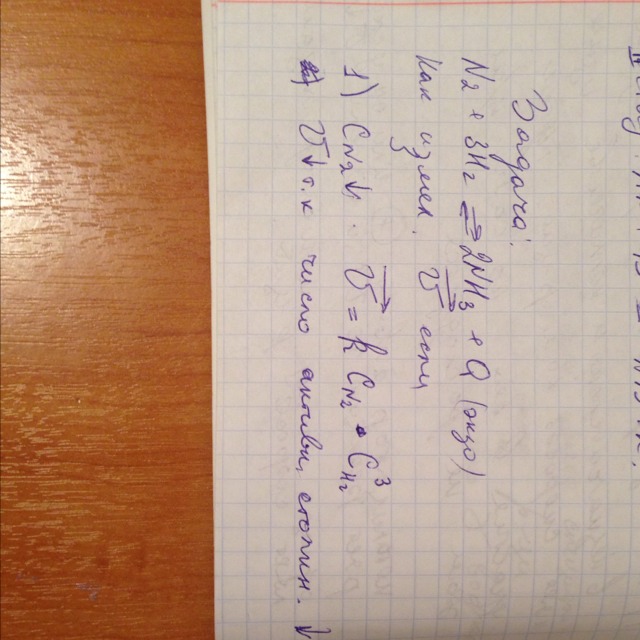 Задача:
N₂ + 3H₂ ⇄ 2NH₃ + Q (экзо)
Как измен. V⃗ если
1) CN₂↓. V⃗ = k CN₂ • C³H₂
V↓ т.к число активн. столкн. ↓